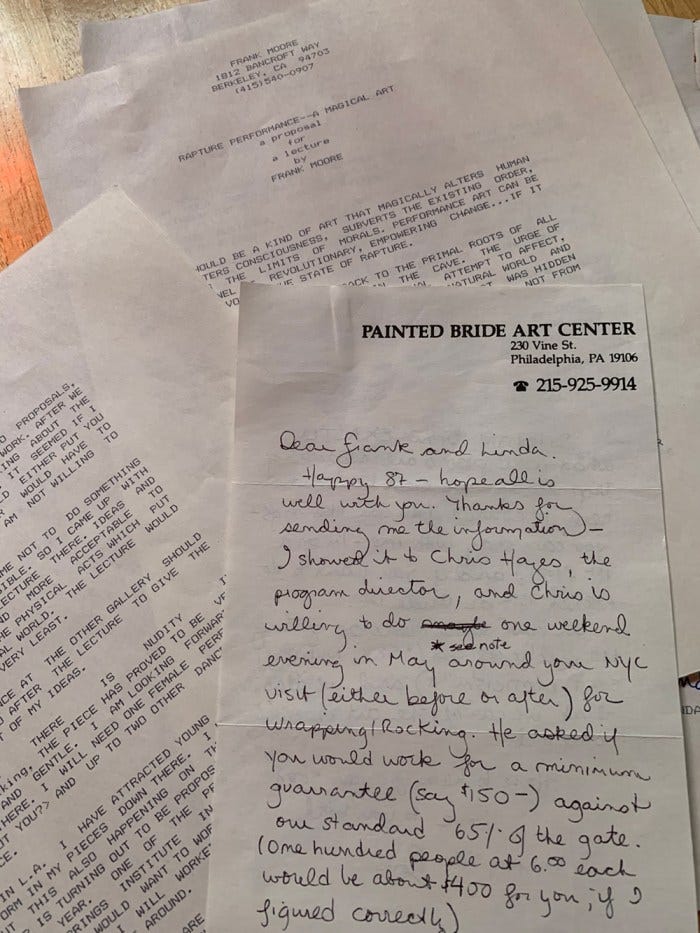 FRANK MOORE
1812 BANCROFT WAY
BERKELEY, CA 94703
(415)540-0907
RAPTURE PERFORMANCE--A MAGICAL ART
a proposal
for
a lecture
by
FRANK MOORE
OULD BE A KIND OF ART THAT MAGICALLY ALTERS HUMAN
TERS CONSCIOUSNESS, SUBVERTS THE EXISTING ORDER,
THE LIMITS OF MORALS. PERFORMANCE ART CAN BE
NEL REVOLUTIONARY, EMPOWERING CHANGE...IF IT
VO STATE OF RAPTURE.
ACK TO THE PRIMAL ROOTS OF ALL
THE CAVE. THE URGE OF
ATTEMPT TO AFFECT,
NATURAL WORLD AND
WAS HIDDEN
NOT FROM
PAINTED BRIDE ART CENTER
230 Vine St.
Philadelphia, PA 19106
☎ 215-925-9914
Dear Frank and Linda.
Happy 87 – hope all is
well with you. Thanks for
sending me the information –
I showed it to Chris Hayes, the
program director, and Chris is
willing to do maybe one weekend
* see note
evening in May around your NYC
visit (either before or after) for
wrapping/Rocking. He asked if
you would work for a minimum
guarrantee (say $150–) against
our standard 65% of the gate.
(One hundred people at 6.00 each
would be about $400 for you, if I
figured correctly)
O PROPOSALS,
WORK. AFTER WE
ING ABOUT THE
IT SEEMED IF I
D EITHER PUT YOU
R WOULD HAVE TO
AM NOT WILLING TO
ME NOT TO DO SOMETHING
SIBLE. SO I CAME UP WITH
LECTURE THERE. IDEAS AND
ND MORE ACCEPTABLE TO
HE PHYSICAL ACTS WHICH PUT
AL WORLD. THE LECTURE WOULD
VERY LEAST.
NCE AT THE OTHER GALLERY SHOULD
D AFTER THE LECTURE TO GIVE THE
T OF MY IDEAS.
THERE IS NUDITY
king, THE PIECE HAS PROVED TO BE VE
AND GENTLE. I AM LOOKING FORWARD
HERE. I WILL NEED ONE FEMALE PERF
T YOU?> AND UP TO TWO OTHER DANC
CE.
IN L.A. I HAVE ATTRACTED YOUNG
ORM IN MY PIECES DOWN THERE. I
UT THIS ALSO HAPPENING ON TH
R IS TURNING OUT TO BE PROPOS
YEAR. ONE OF THE PR
RINGS INSTITUTE IN
WOULD WANT TO WOR
I WILL WORKE
AROUND.
ARE